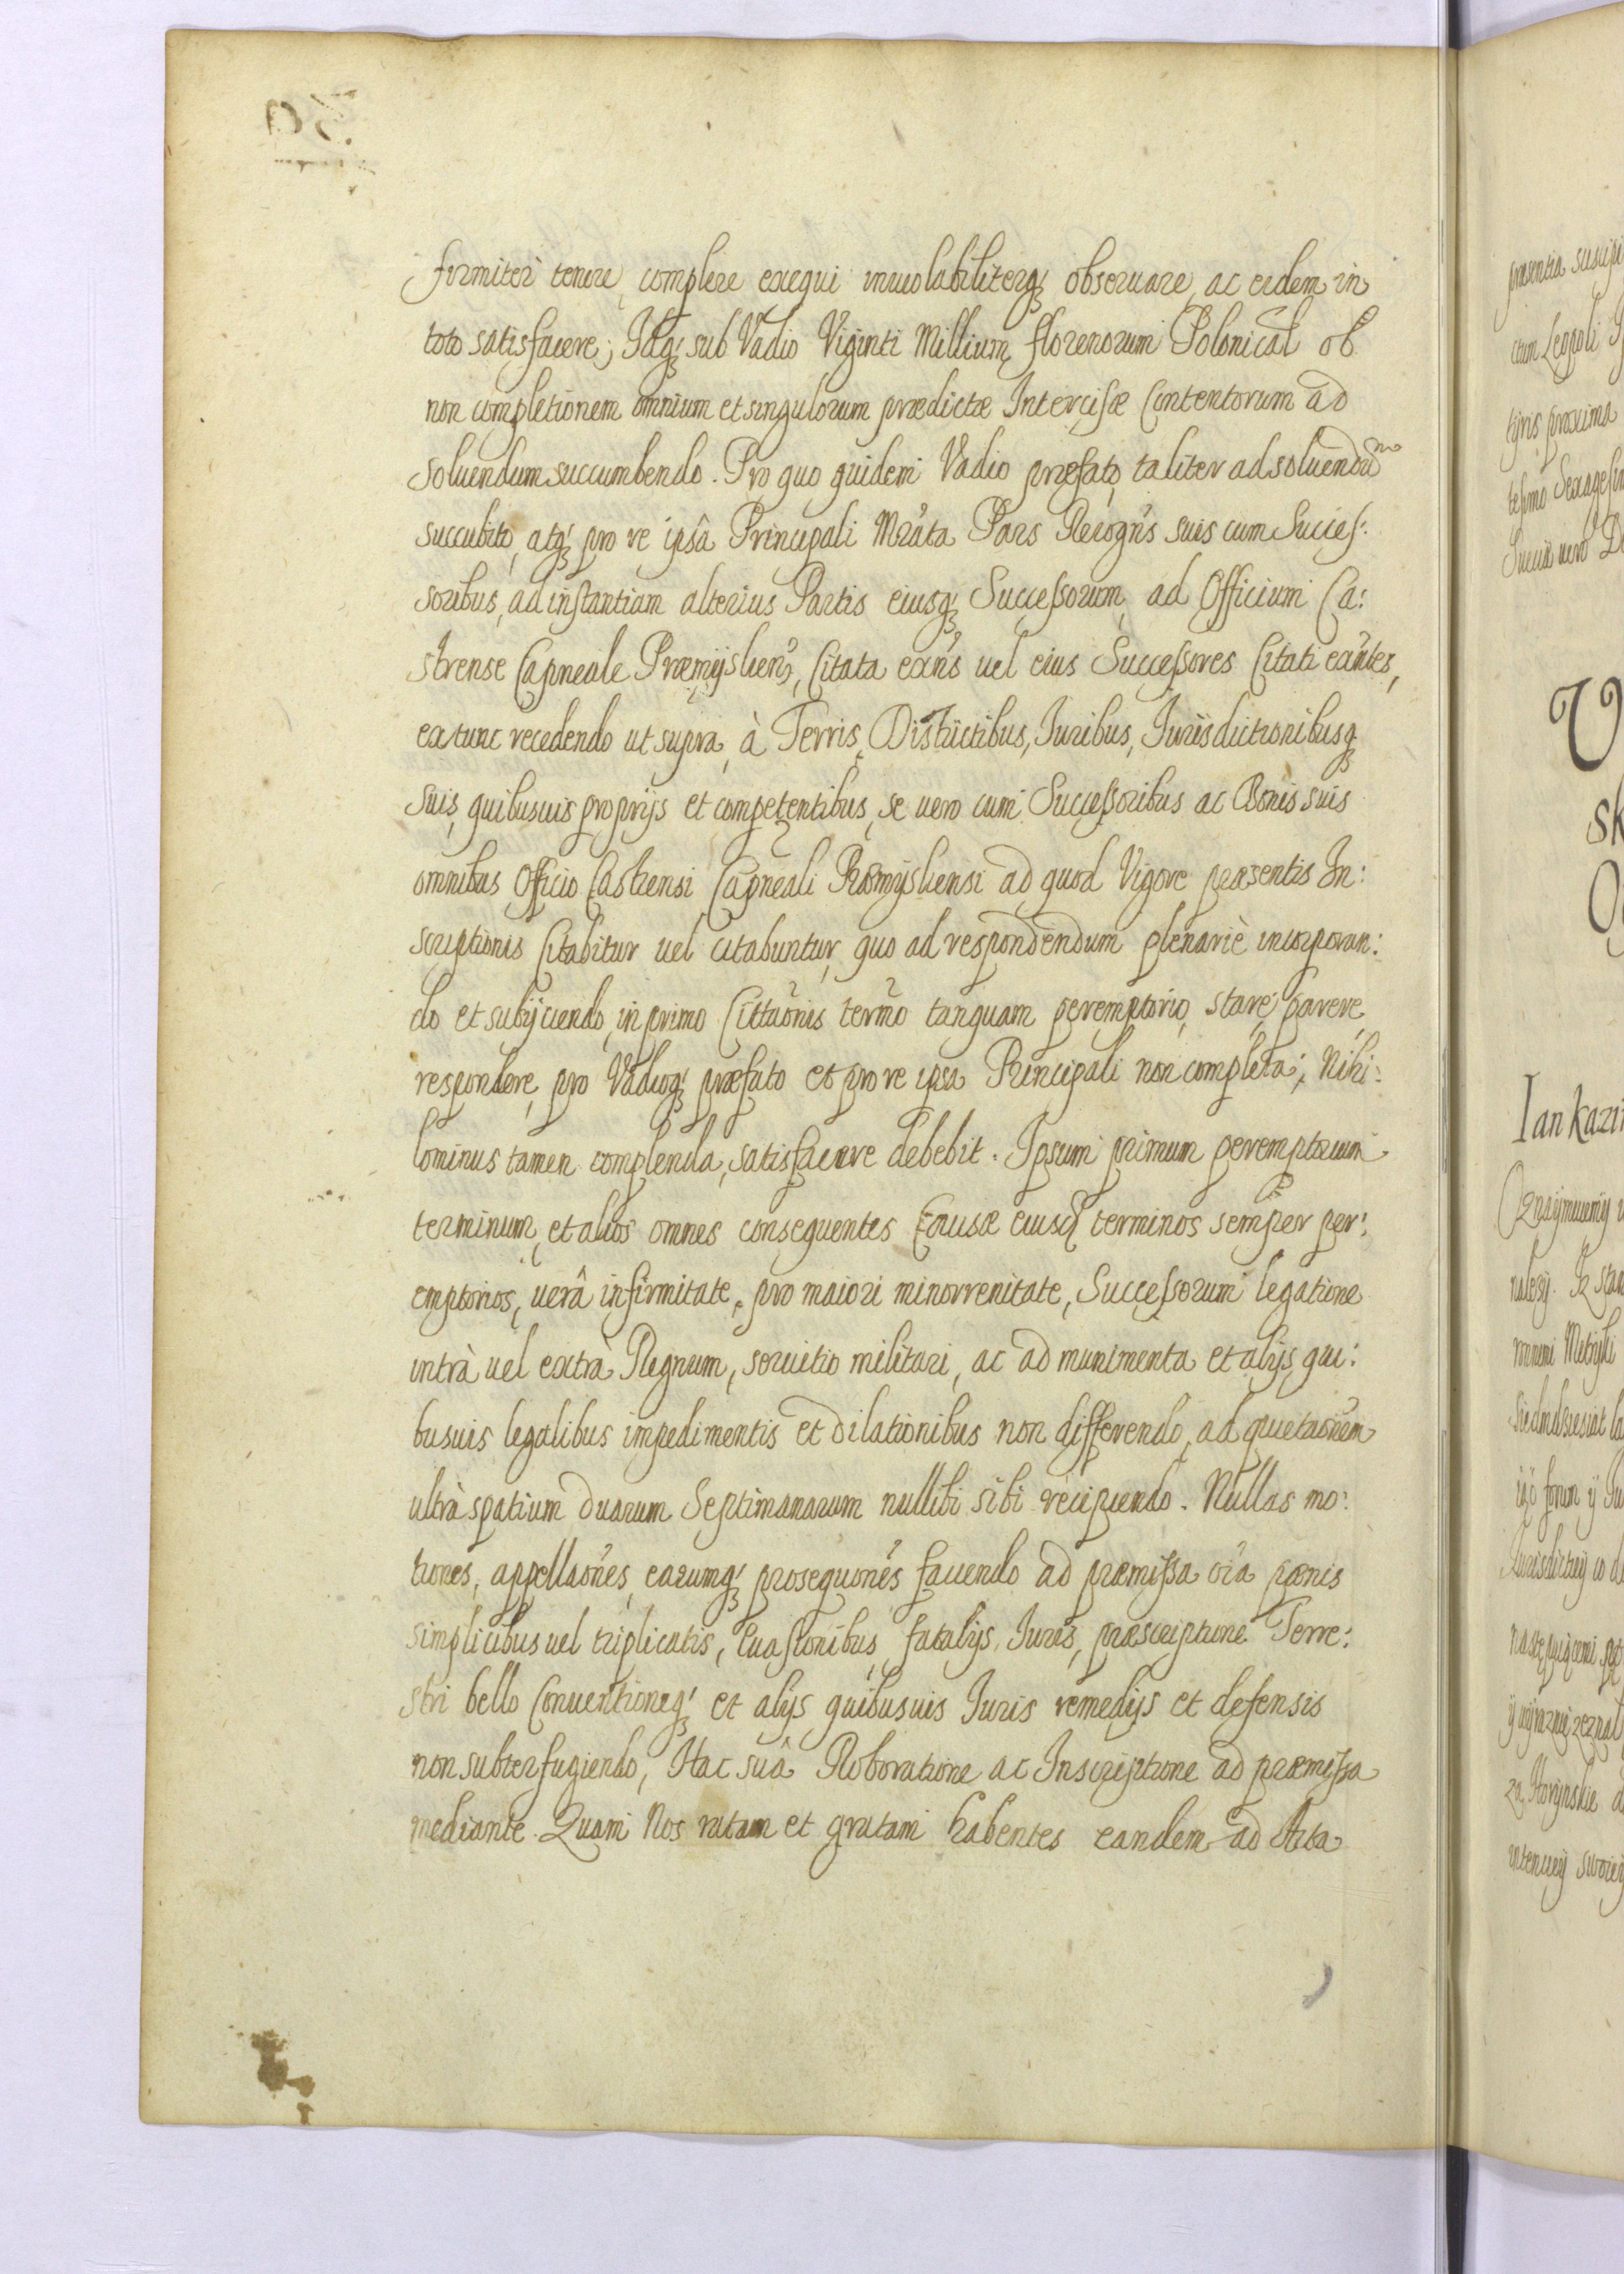 firmiter tenere, complere exequi inuiolabiliterq; obseruare, ac eidem in
toto satisfacere; Idq; sub Vadio Viginti Millium florenorum Polonical ob
non completionem omnium et singulorum prædictæ Intercisæ Contentorum ad
soluendum succumbendo. Pro quo quidem Vadio præfato, taliter ad soluendũ
succubito, atq; pro re ipsâ Principali Mrãta Pars Recogñs suis cum Succes:
soribus, ad instantiam alterius Partis eiusq; Successorum, ad Officium Ca:
strense Capneale Præmysliens, Citata exñs uel eius Successores Citati exñtes,
extunc recedendo ut supra, à Terris, Districtibus, Iuribus, Iurisdictionibusq;
suis, quibusuis proprijs et competentibus, se uero cum Successoribus ac Bonis suis
omnibus Officio Castrensi Capneali Præmysliensi ad quod Vigore præsentis In:
scriptionis Citabitur uel citabuntur, quo ad respondendum plenariè incorporan:
do et subijciendo, in primo Cittaõnis termõ tanquam peremptorio, stare, parere,
respondere, pro Vadioq; præfato et pro re ipsa Principali non completa; Nihi:
lominus tamen complenda, satisfacere debebit. Ipsum primum peremptorium
terminum, et alios omnes consequentes Causæ eiusd terminos semper per:
emptorios, uerâ infirmitate, pro maiori minorrenitate, Successorum legatione
intrà uel extrà Regnum, seruitio militari, ac ad munimenta et alijs qui:
busuis legalibus impedimentis et dilationibus non differendo, ad quietaõnem
ultrà spatium duarum Septimanarum nullibi sibi recipiendo. Nullas mo:
tiones, appellaõnes, earumq; prosequõnes fauendo ad præmissa oĩa pænis
simplicibus uel triplicatis, Euasionibus, fatalijs Iuris, præscriptione Terre:
stri bello Conuentioneq; et alijs quibusuis Iuris remedijs et defensis
non subterfugiendo, Hac suâ Roboratione ac Inscriptione ad præmissa
mediante. Quam Nos ratam et gratam habentes eandem ad Acta
præsentia suscipi
ctum Leopoli
proxima
Sexagesim
uero
V
sk
Ian Kazi